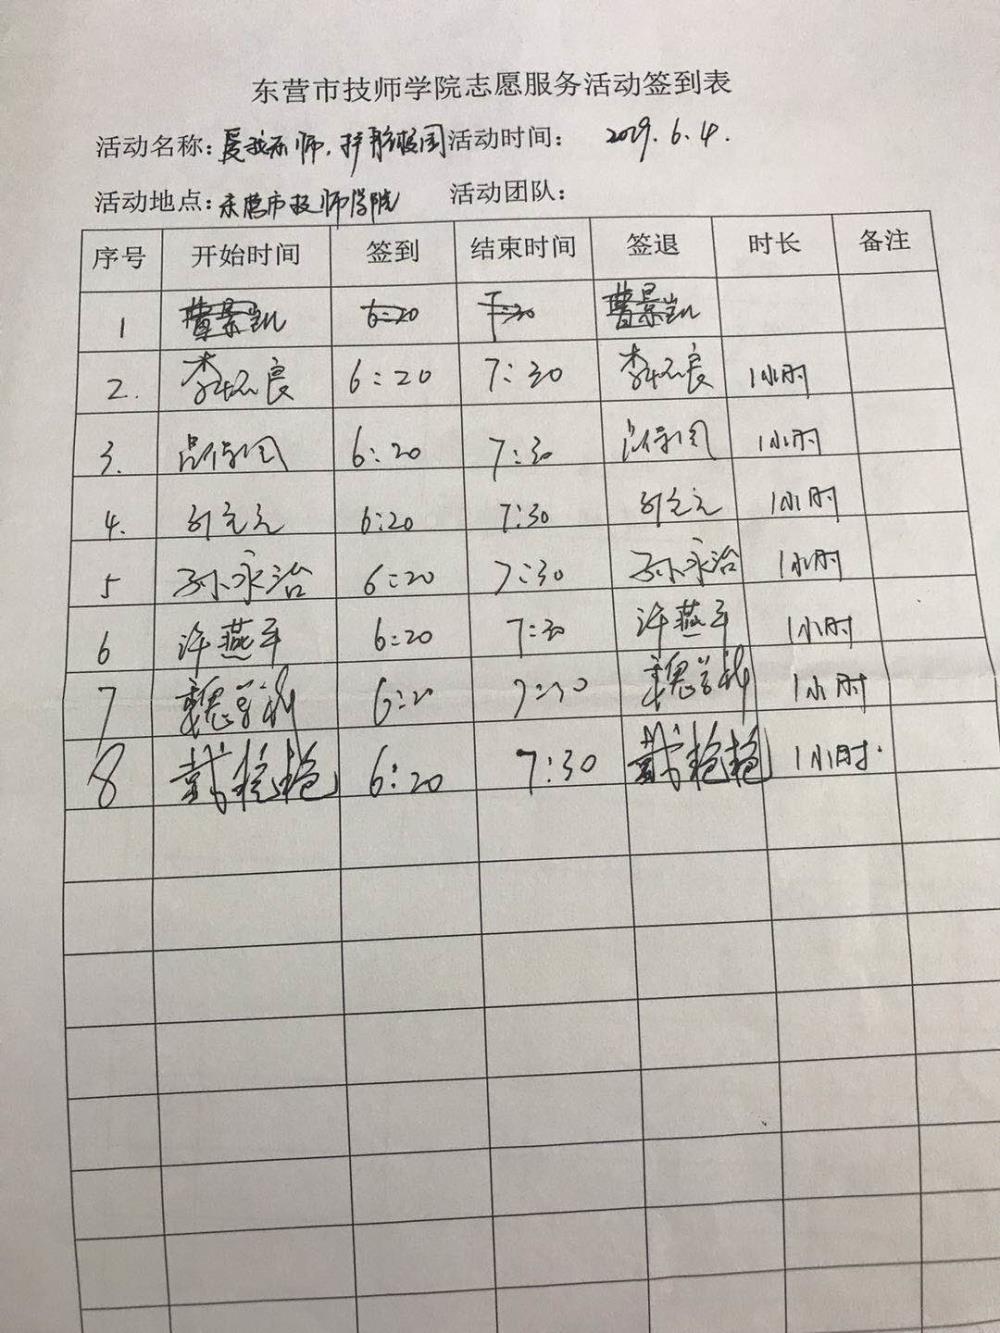 东营市技师学院志愿服务活动签到表
活动名称：爱我东师，护校园活动时间：2019.6.4.
活动地点：东营市技师学院 活动团队：
序号 开始时间 签到 结束时间 签退 时长 备注
1 曹景凯 6:20 7:30 曹景凯
2. 李 良 6:20 7:30 李 良 1小时
3. 6:20 7:30 1小时
4. 6:20 7:30 1小时
5 孙永治 6:20 7:30 孙永治 1小时
6 许燕平 6:20 7:30 许燕平 1小时
7 魏 6:20 7:30 魏 1小时
8 戴艳艳 6:20 7:30 戴艳艳 1小时.